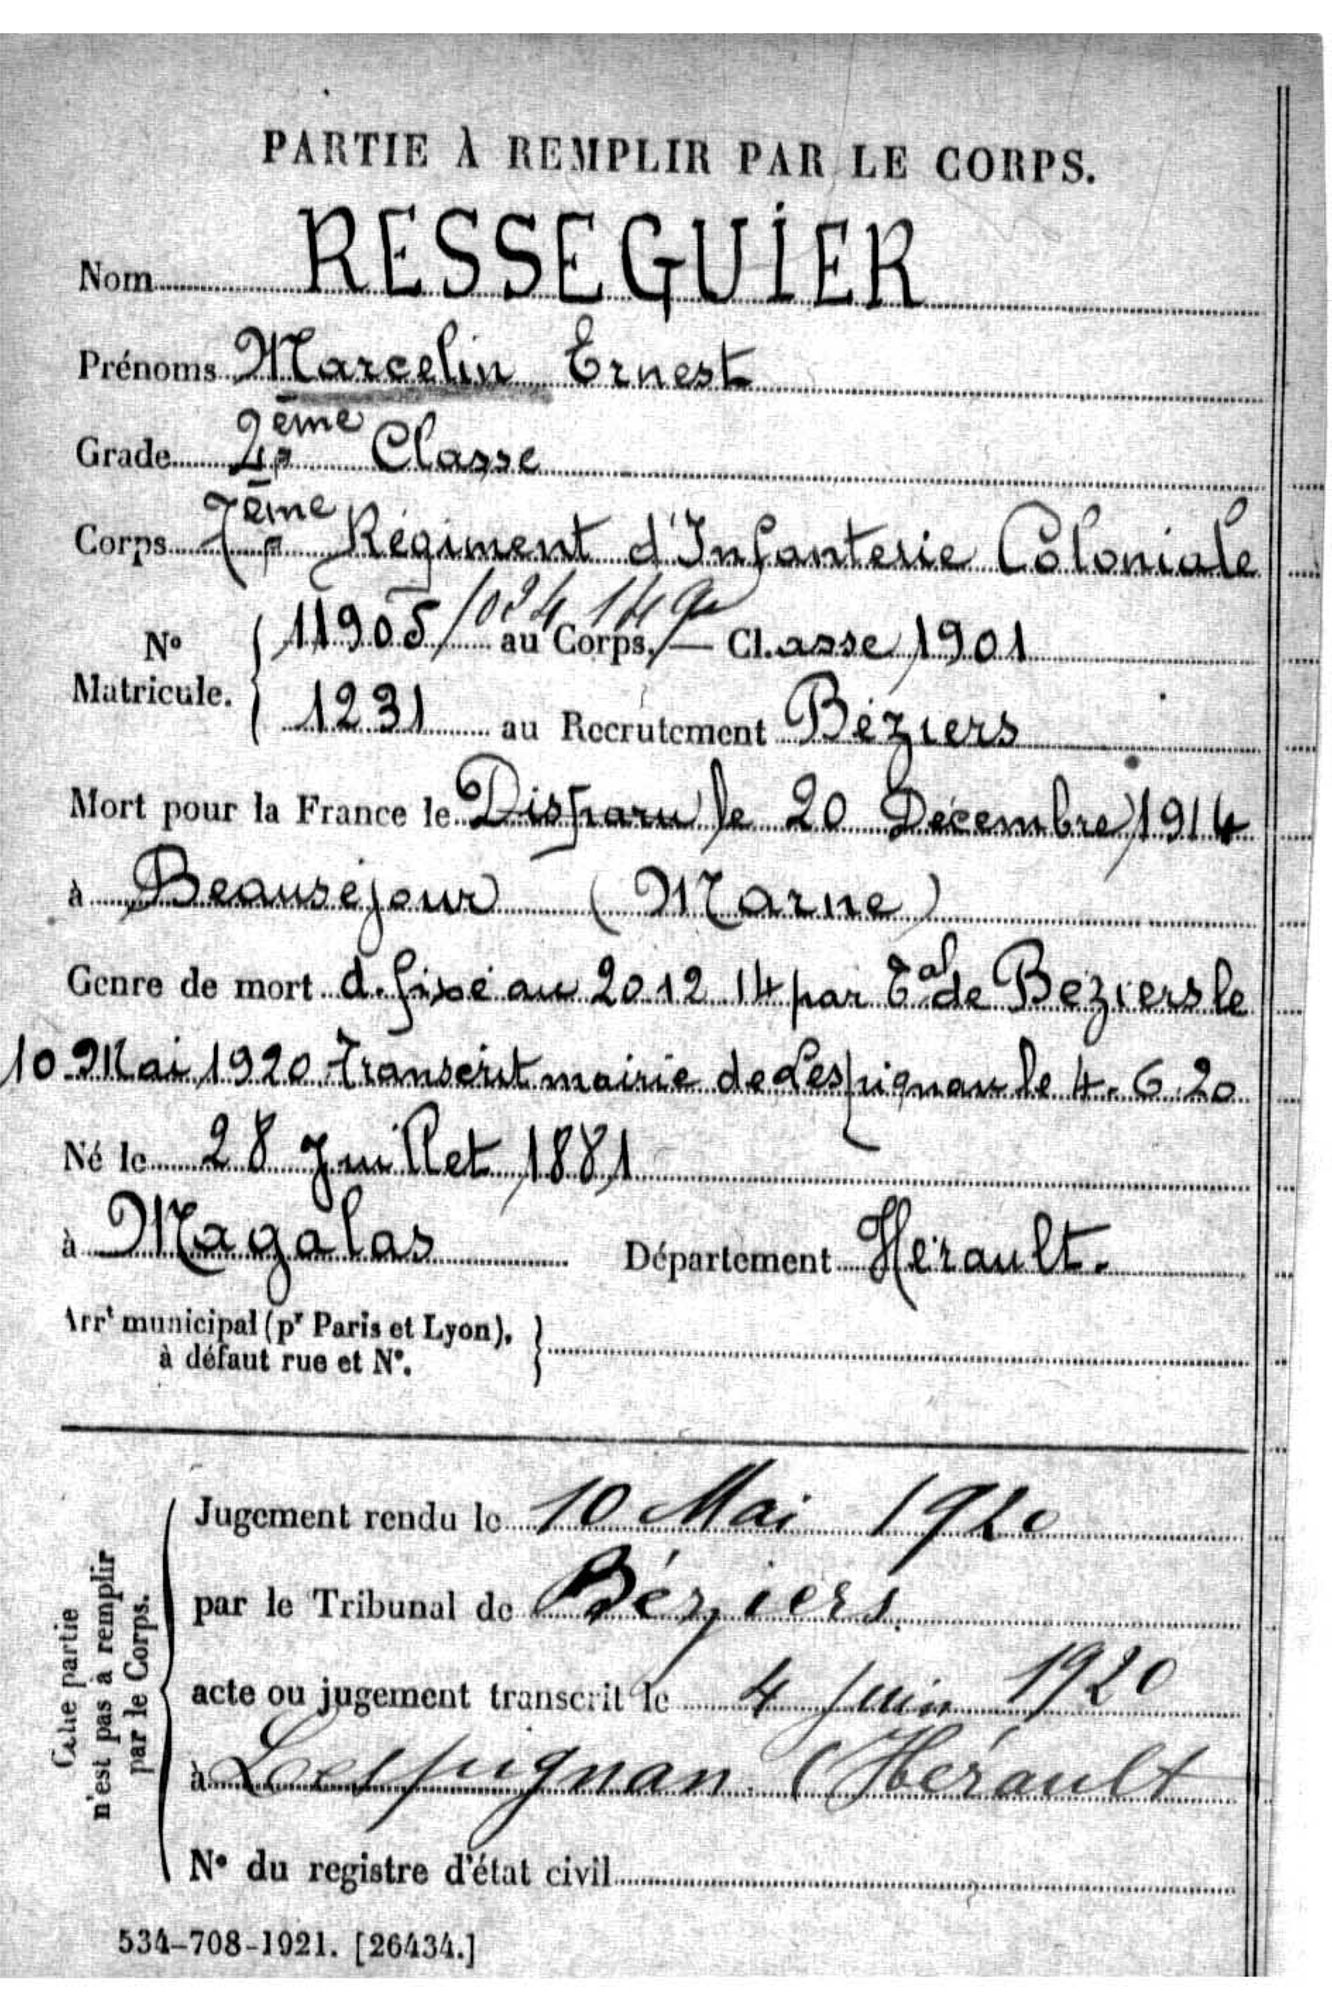 PARTIE À REMPLIR PAR LE CORPS.
Nom RESSEGUIER
Prénoms Marcelin Ernest
Grade 2ème Classe
Corps 7ème Régiment d'Infanterie Coloniale
No 11905 au Corps. — Cl.asse 1901
Matricule. 1231 au Recrutement Béziers
Mort pour la France le Disparu le 20 Décembre 1914
à Beauséjour (Marne)
Genre de mort d. fixé au 20 12 14 par Tal de Béziers le
10 Mai 1920 Transcrit mairie de Lespignan le 4.6.20
Né le 28 Juillet 1881
à Magalas Département Hérault.
Arrt municipal (pr Paris et Lyon),
à défaut rue et N°.
Cette partie
n'est pas à remplir
par le Corps.
Jugement rendu le 10 Mai 1920
par le Tribunal de Béziers
acte ou jugement transcrit le 4 Juin 1920
à Lespignan (Hérault
N° du registre d'état civil
534-708-1921. [26434.]